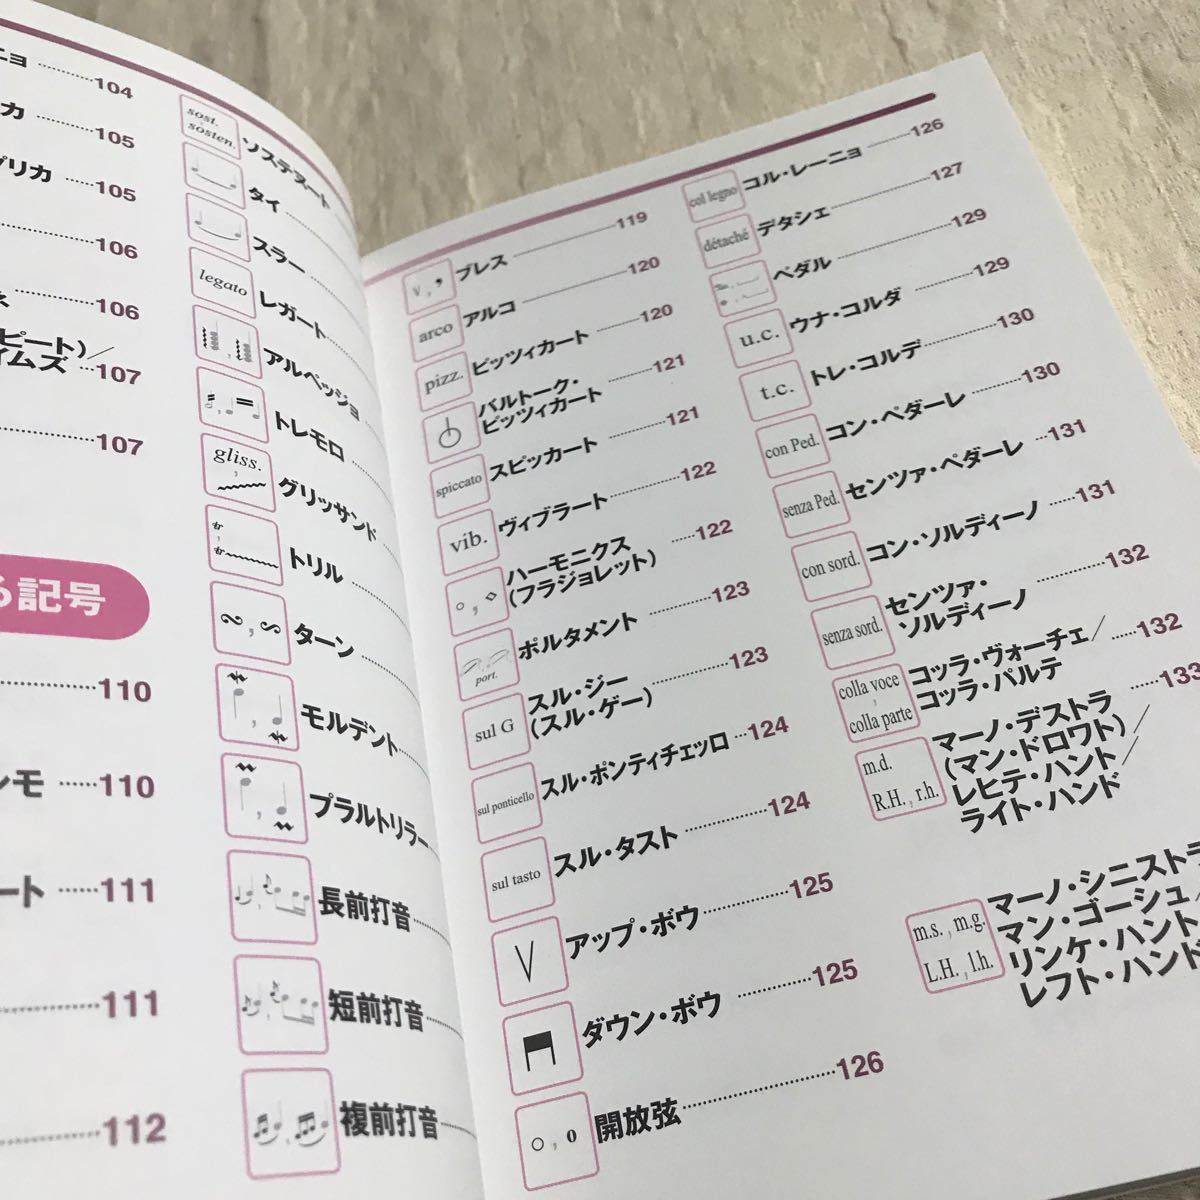 ニョ ………104
カ ………105
プリカ ……105
………106
………106
ピート)／
イムズ …107
………107
る記号
………110
ンモ ……110
ート ……111
………111
………112
sost.
sosten.
ソステヌート
タイ
スラー
legato
レガート
アルペッジョ
トレモロ
gliss.
グリッサンド
tr
tr
トリル
ターン
モルデント
プラルトリラー
長前打音
短前打音
複前打音
V , ❜
ブレス ………119
arco
アルコ ………120
pizz.
ピッツィカート ………120
バルトーク・
ピッツィカート ………121
spiccato
スピッカート ………121
vib.
ヴィブラート ………122
ハーモニクス
(フラジョレット) ……122
port.
ポルタメント ………123
sul G
スル・ジー
(スル・ゲー) ………123
sul ponticello
スル・ポンティチェッロ …124
sul tasto
スル・タスト ………124
V
アップ・ボウ ………125
ダウン・ボウ ………125
o , o
開放弦 ………126
col legno
コル・レーニョ ………126
détaché
デタシェ ………127
ペダル ………129
u.c.
ウナ・コルダ ………129
t.c.
トレ・コルデ ………130
con Ped.
コン・ペダーレ ………130
senza Ped.
センツァ・ペダーレ …131
con sord.
コン・ソルディーノ ……131
senza sord.
センツァ・
ソルディーノ ………132
colla voce
,
colla parte
コッラ・ヴォーチェ／
コッラ・パルテ ……132
m.d.
R.H. , r.h.
マーノ・デストラ
(マン・ドロワト)／
レヒテ・ハント／
ライト・ハンド ……133
m.s. , m.g.
L.H. , l.h.
マーノ・シニストラ
マン・ゴーシュ／
リンケ・ハント
レフト・ハンド